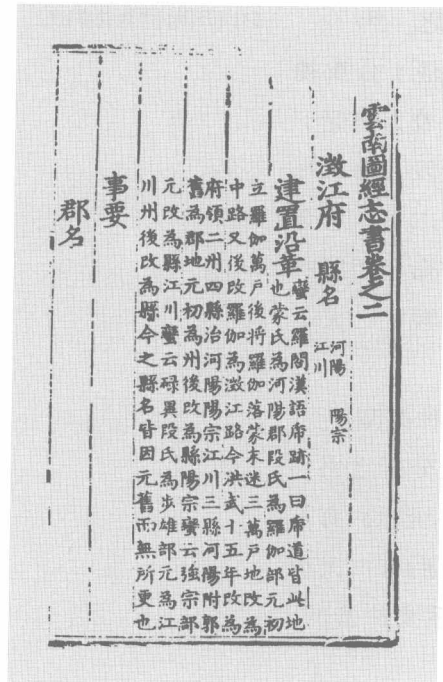 雲南圖經志書卷之二
澂江府 縣名 河陽 陽宗
江川
建置沿革 蠻云羅閣漢語虎跡一曰虎道皆此地
也蒙氏為河陽郡段氏為羅伽部元初
立羅伽萬戶後将羅伽落蒙末迷三萬戶地改為
中路又後改羅伽為澂江路今洪武十五年改為
府領二州四縣治河陽陽宗江川三縣河陽附郭
舊為郡地元初為州後改為縣陽宗蠻云強宗部
元改為縣江川蠻云碌異段氏為步雄部元為江
川州後改為縣今之縣名皆因元舊而無所更也
事要
郡名